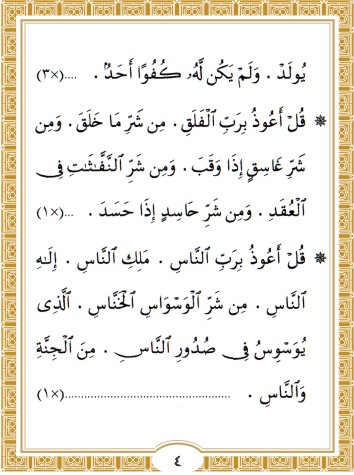 يُولَدْ . وَلَمْ يَكُن لَّهُۥ كُفُوًا أَحَدٌۢ . ....(×٣)
* قُلْ أَعُوذُ بِرَبِّ ٱلْفَلَقِ . مِن شَرِّ مَا خَلَقَ . وَمِن
شَرِّ غَاسِقٍ إِذَا وَقَبَ . وَمِن شَرِّ ٱلنَّفَّـٰثَـٰتِ فِى
ٱلْعُقَدِ . وَمِن شَرِّ حَاسِدٍ إِذَا حَسَدَ . ....(×١)
* قُلْ أَعُوذُ بِرَبِّ ٱلنَّاسِ . مَلِكِ ٱلنَّاسِ . إِلَـٰهِ
ٱلنَّاسِ . مِن شَرِّ ٱلْوَسْوَاسِ ٱلْخَنَّاسِ . ٱلَّذِى
يُوَسْوِسُ فِى صُدُورِ ٱلنَّاسِ . مِنَ ٱلْجِنَّةِ
وَٱلنَّاسِ . ..........................................(×١)
٤